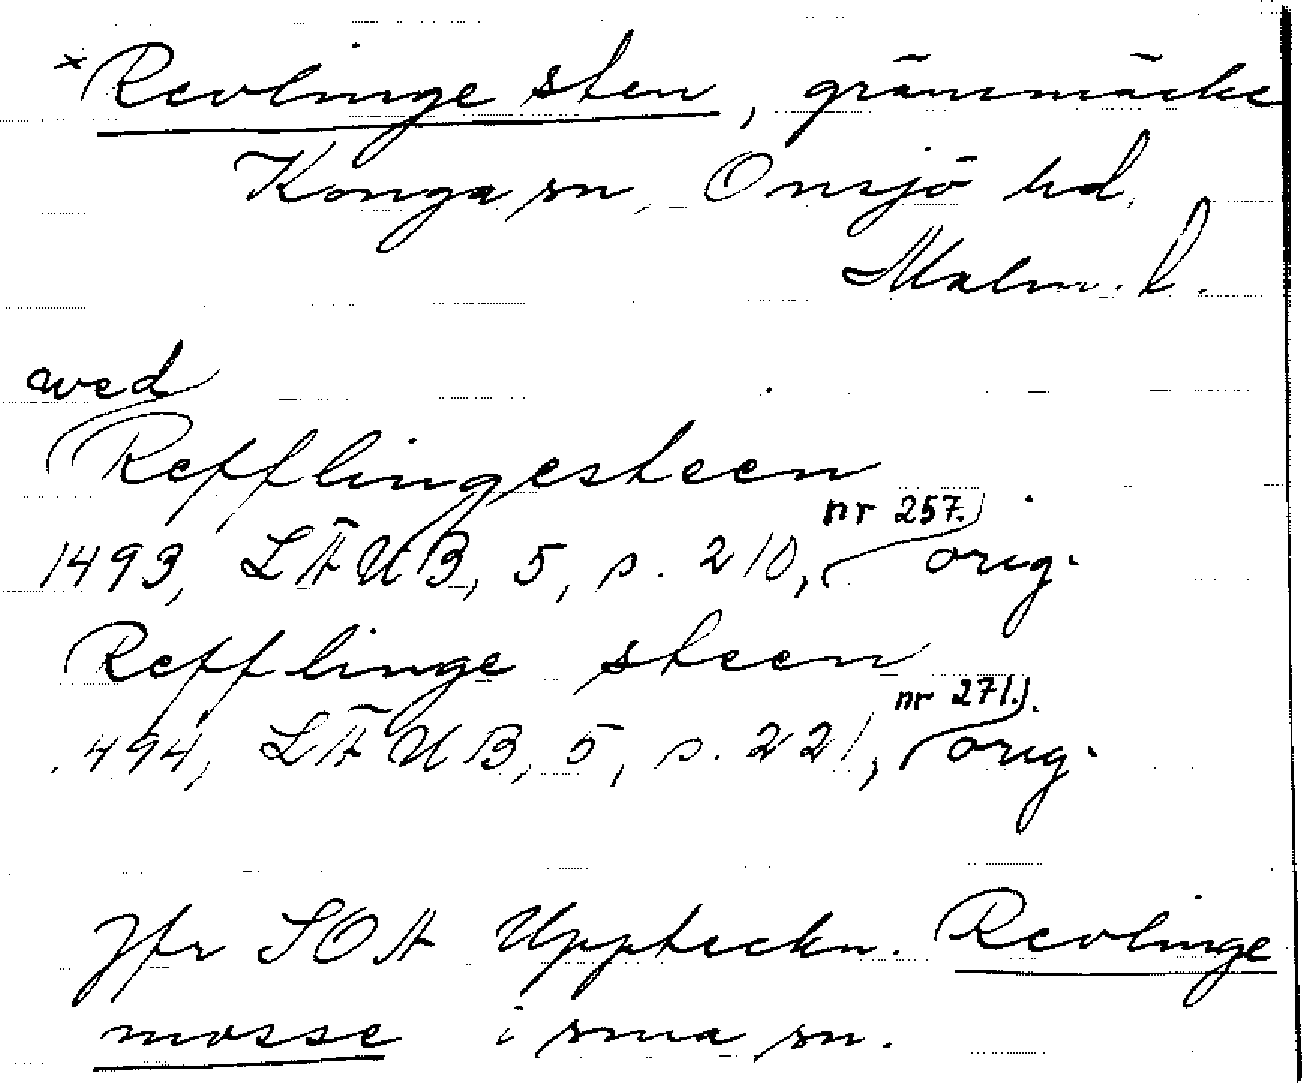 *Revlinge sten, gränsmärke
Konga sn, Onsjö hd,
Malm. l.
wed
Refflingesteen
1493, LÄUB, 5, s. 210, nr 257. orig.
Refflinge steen
.494, LÄUB, 5, s. 221, nr 271. orig.
Jfr SOA Uppteckn. Revlinge
mosse i sma sn.